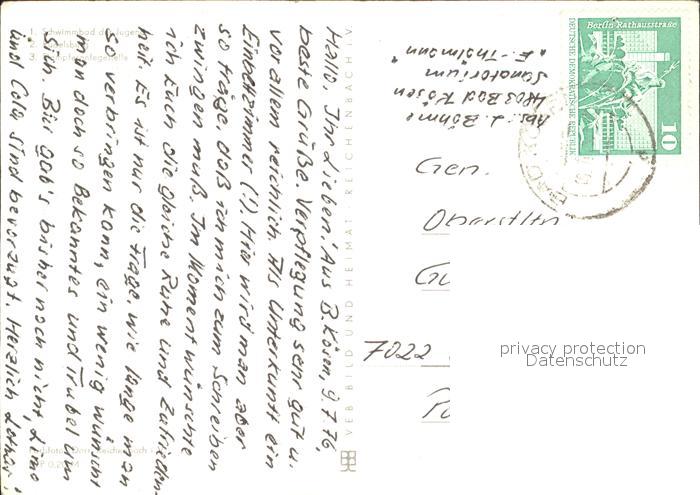 1. Schwimmbad der Jugend
2.
3.
Hallo, Ihr Lieben! Aus B. Kösen, 9.7.76,
beste Grüße. Verpflegung sehr gut u.
vor allem reichlich. Als Unterkunft ein
Einbettzimmer (!). Hier wird man aber
so träge, daß ich mich zum Schreiben
zwingen muß. Im Moment wünschte
ich Euch die gleiche Ruhe und Zufrieden-
heit. Es ist nur die Frage, wie lange man
so verbringen kann, ein wenig wünscht
man doch so Bekanntes und Trubel um
sich. Bier gab's bisher noch nicht, Limo
und Cola sind bevorzugt. Herzlich Lothar.
VEB BILD UND HEIMAT REICHENBACH i. V.
Abs.: L. Böhme
4803 Bad Kösen
Sanatorium
"E. Thälmann"
Berlin · Rathausstraße
DEUTSCHE DEMOKRATISCHE REPUBLIK
10
Gen.
Oberstltn
Gu
7022
privacy protection
Datenschutz